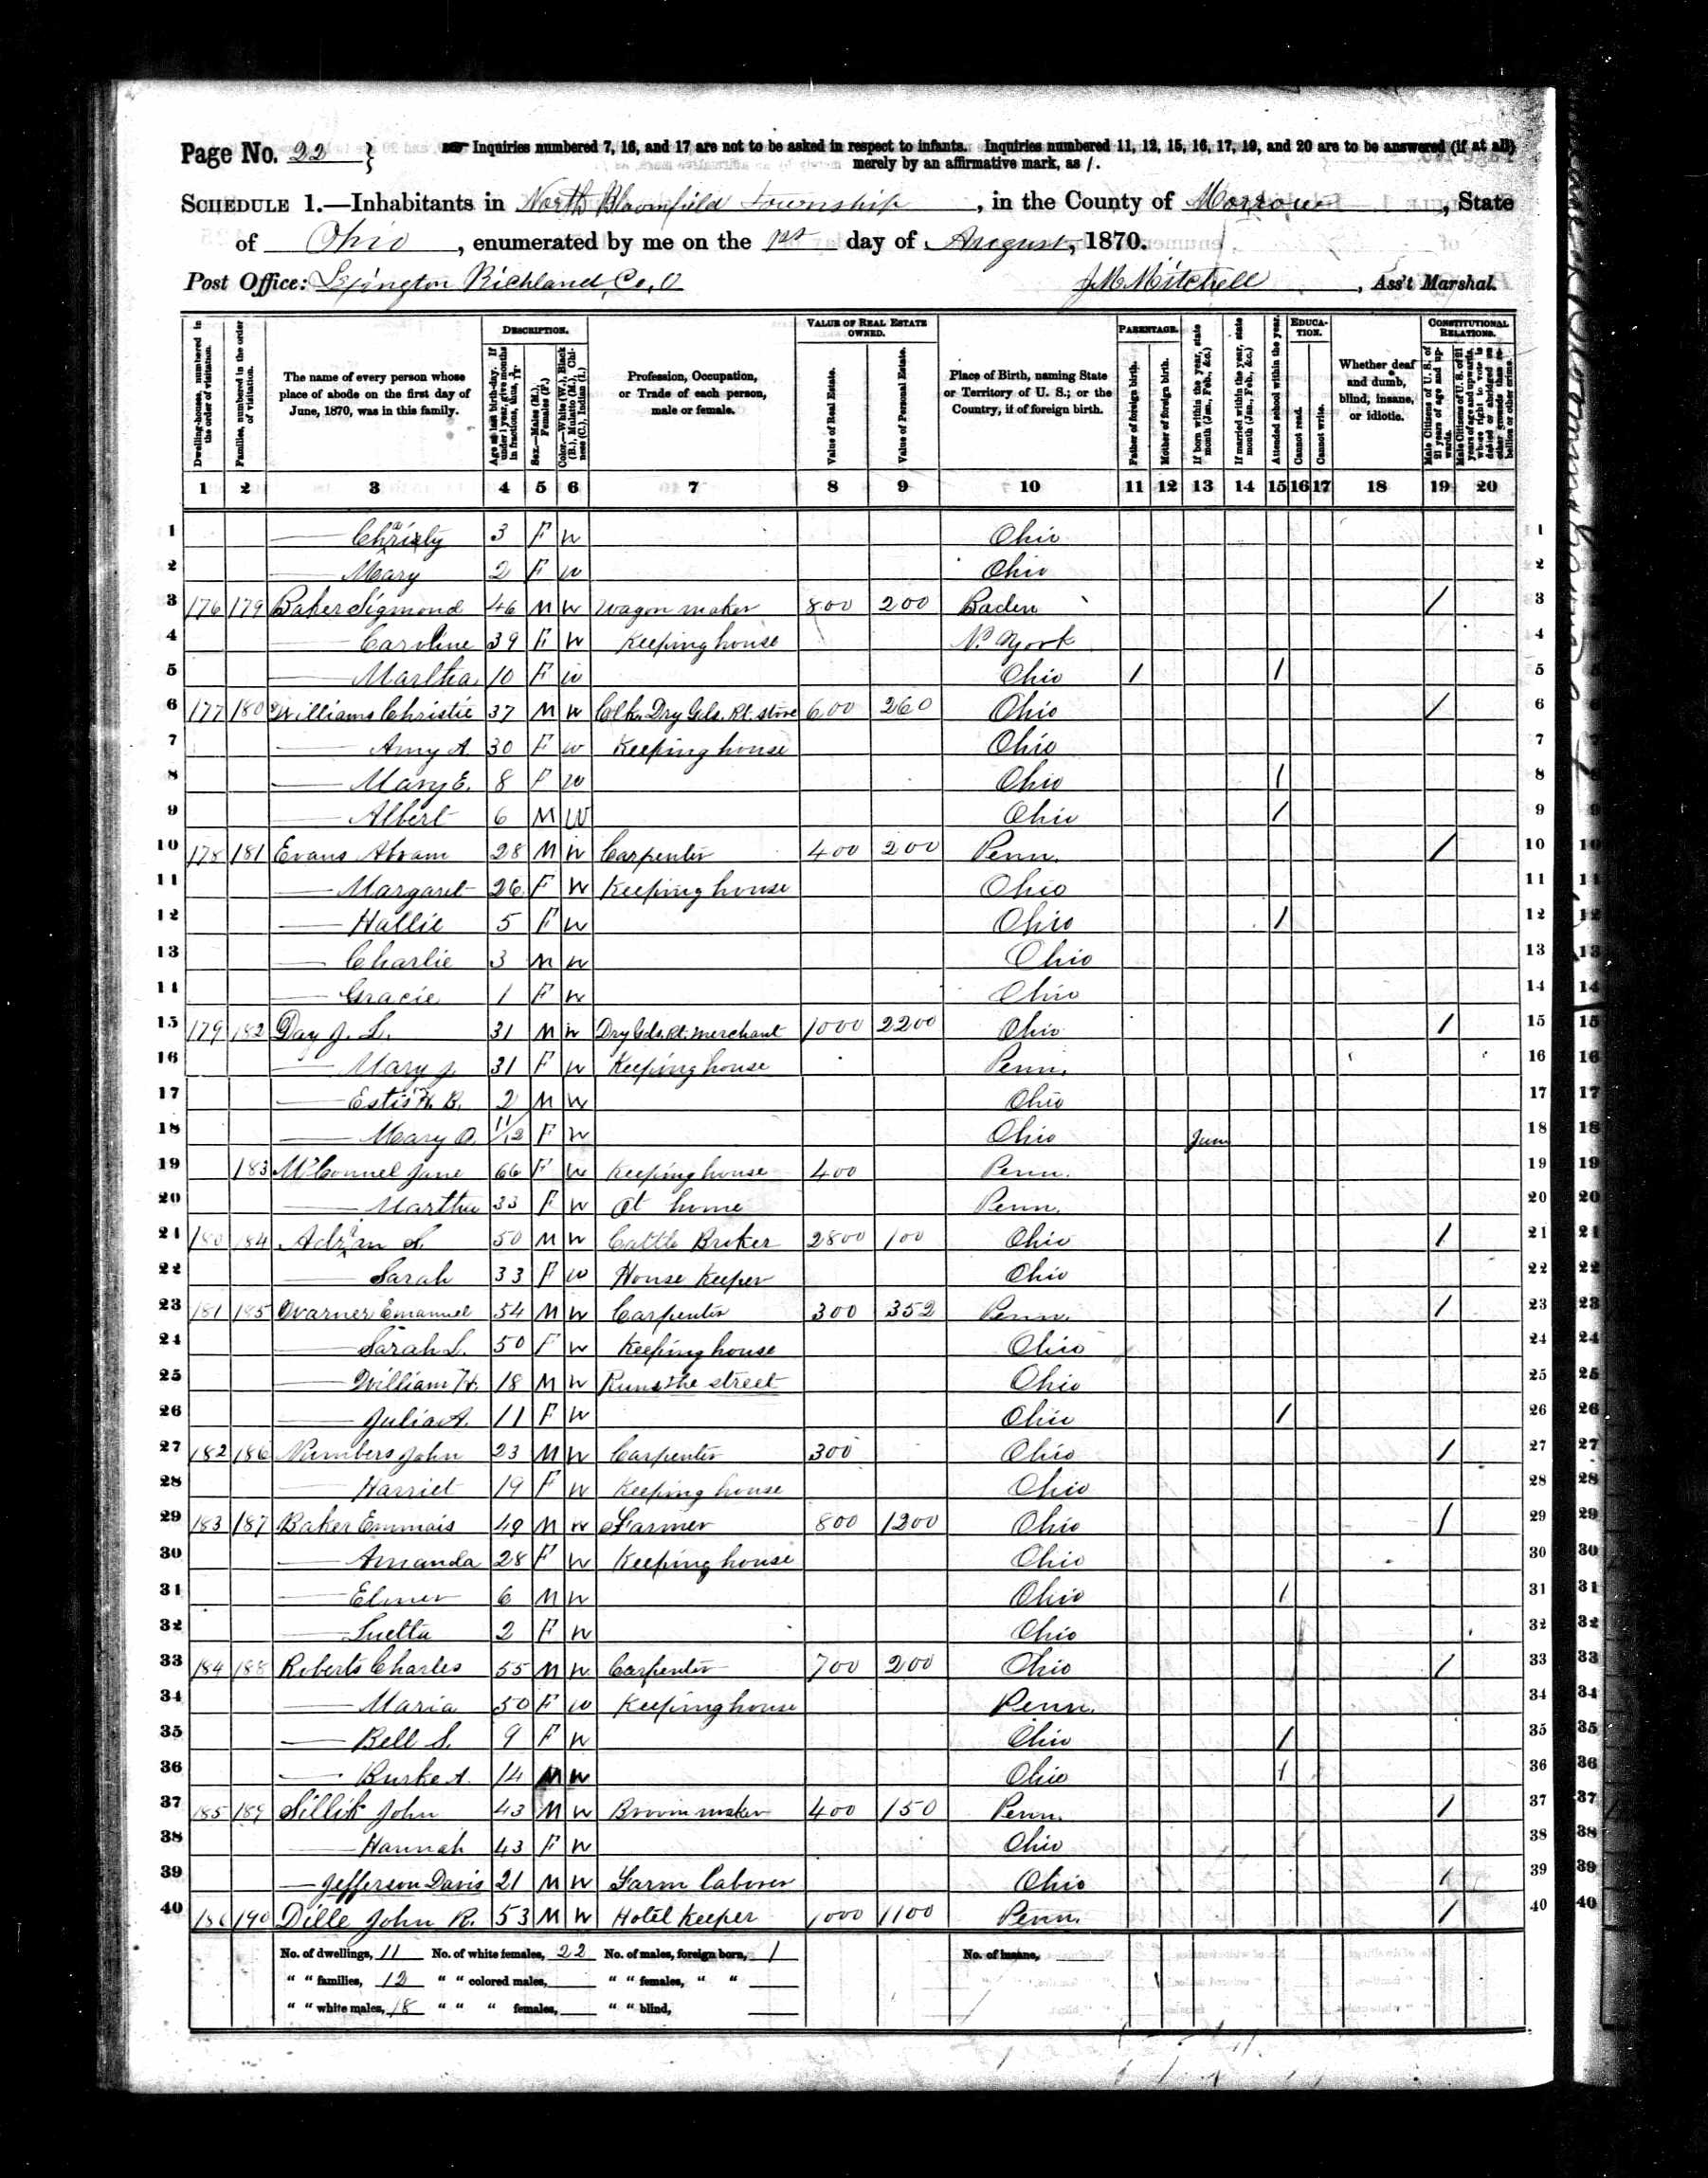 Page No. 22 } Inquiries numbered 7, 16, and 17 are not to be asked in respect to infants. Inquiries numbered 11, 12, 15, 16, 17, 19, and 20 are to be answered (if at all)
merely by an affirmative mark, as /.
SCHEDULE 1.—Inhabitants in North Bloomfield Township, in the County of Morrow, State
of Ohio, enumerated by me on the 1st day of August, 1870.
Post Office: Lexington Richland Co, O J M Mitchell, Ass't Marshal.
Dwelling-houses, numbered in the order of visitation.
Families, numbered in the order of visitation.
The name of every person whose place of abode on the first day of June, 1870, was in this family.
DESCRIPTION.
Age at last birth-day. If under 1 year, give months in fractions, thus, 3/12
Sex.—Males (M.), Females (F.)
Color.—White (W.), Black (B.), Mulatto (M.), Chinese (C.), Indian (I.)
Profession, Occupation, or Trade of each person, male or female.
VALUE OF REAL ESTATE OWNED.
Value of Real Estate.
Value of Personal Estate.
Place of Birth, naming State or Territory of U. S.; or the Country, if of foreign birth.
PARENTAGE.
Father of foreign birth.
Mother of foreign birth.
If born within the year, state month (Jan., Feb., &c.)
If married within the year, state month (Jan., Feb., &c.)
Attended school within the year.
EDUCATION.
Cannot read.
Cannot write.
Whether deaf and dumb, blind, insane, or idiotic.
CONSTITUTIONAL RELATIONS.
Male Citizens of U. S. of 21 years of age and upwards.
Male Citizens of U. S. of 21 years of age and upwards, whose right to vote is denied or abridged on other grounds than rebellion or other crime.
1 2 3 4 5 6 7 8 9 10 11 12 13 14 15 16 17 18 19 20
1 — 3 F W Ohio 1
2 — Mary 2 F W Ohio 2
3 176 179 Baker Sigmond 46 M W Wagon maker 800 200 Baden / 3
4 — Caroline 39 F W Keeping house N. York 4
5 — Martha 10 F W Ohio / / 5
6 177 180 Williams Christie 37 M W Clk. Dry Gds. Rt. Store 600 260 Ohio / 6
7 — Amy A. 30 F W Keeping house Ohio 7
8 — Mary E. 8 F W Ohio / 8
9 — Albert 6 M W Ohio / 9
10 178 181 Evans Abram 28 M W Carpenter 400 200 Penn. / 10
11 — Margaret 26 F W Keeping house Ohio 11
12 — Hallie 5 F W Ohio / 12
13 — Charlie 3 M W Ohio 13
14 — Gracie 1 F W Ohio 14
15 179 182 Day J. L. 31 M W Dry Gds. Rt. Merchant 1000 2200 Ohio / 15
16 — Mary J. 31 F W Keeping house Penn. 16
17 — B. 2 M W Ohio 17
18 — Mary O. 11/12 F W Ohio Jun 18
19 183 McConnel Jane 66 F W Keeping house 400 Penn. 19
20 — Martha 33 F W At home Penn. 20
21 180 184 50 M W Cattle Broker 2800 100 Ohio / 21
22 — Sarah 33 F W House Keeper Ohio 22
23 181 185 Warner Emanuel 54 M W Carpenter 300 352 Penn. / 23
24 — Sarah L. 50 F W Keeping house Ohio 24
25 — William H. 18 M W Runs the street Ohio 25
26 — Julia A. 11 F W Ohio / 26
27 182 186 Numbers John 23 M W Carpenter 300 Ohio / 27
28 — Harriet 19 F W Keeping house Ohio 28
29 183 187 Baker Emmais 49 M W Farmer 800 1200 Ohio / 29
30 — Amanda 28 F W Keeping house Ohio 30
31 — Elmer 6 M W Ohio / 31
32 — Luetta 2 F W Ohio 32
33 184 188 Roberts Charles 55 M W Carpenter 700 200 Ohio / 33
34 — Maria 50 F W Keeping house Penn. 34
35 — Bell S. 9 F W Ohio / 35
36 — Burke A. 14 M W Ohio / 36
37 185 189 Sillik John 43 M W Broom maker 400 150 Penn. / 37
38 — Hannah 43 F W Ohio 38
39 — Jefferson Davis 21 M W Farm Laborer Ohio / 39
40 186 190 Dille John R. 53 M W Hotel Keeper 1000 1100 Penn. / 40
No. of dwellings, 11 No. of white females, 22 No. of males, foreign born, 1 No. of insane,
" " families, 12 " " colored males, " " females, " "
" " white males, 18 " " " females, " " blind,